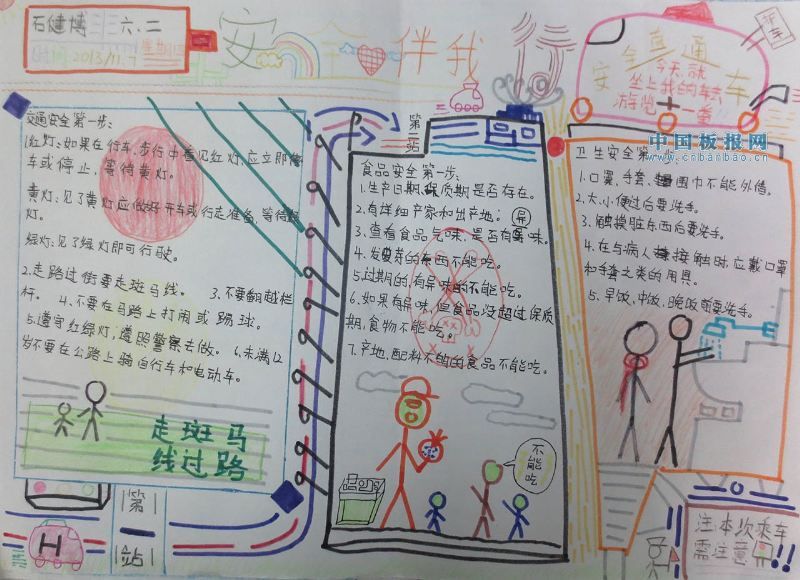 石健博 六.二
时间 2013/11.7 星期
安全伴我行
安全直通车
今天,就
坐上我的车去
游览一番
中国板报网
www.cnbanbao.cn
交通安全第一步:
1.红灯:如果在行车、步行中看见红灯,应立即停
车或停止,等待黄灯。
黄灯:见了黄灯应做好开车或行走准备,等待绿
灯。
绿灯:见了绿灯即可行驶。
2.走路过街要走斑马线。 3.不要翻越栏
杆。 4.不要在马路上打闹或踢球。
5.遵守红绿灯,遵照警察去做。 6.未满12
岁不要在公路上骑自行车和电动车。
走斑马
线过路
第一站
H
第二站
食品安全第一步:
1.生产日期,保质期是否存在。
2.有详细产家和出产地。
3.查看食品气味,是否有异味。
异
4.发芽的东西不能吃。
5.过期的,有异味的不能吃。
6.如果有异味,但食品没超过保质
期,食物不能吃。
7.产地、配料不明的食品不能吃。
不能吃
卫生安全第
1.口罩、手套、围巾不能外借。
2.大、小便过后要洗手。
3.触摸脏东西后要洗手。
4.在与病人接触时,应戴口罩
和手套之类的用具。
5.早饭、中饭、晚饭前要洗手。
注:本次乘车
需注意!!